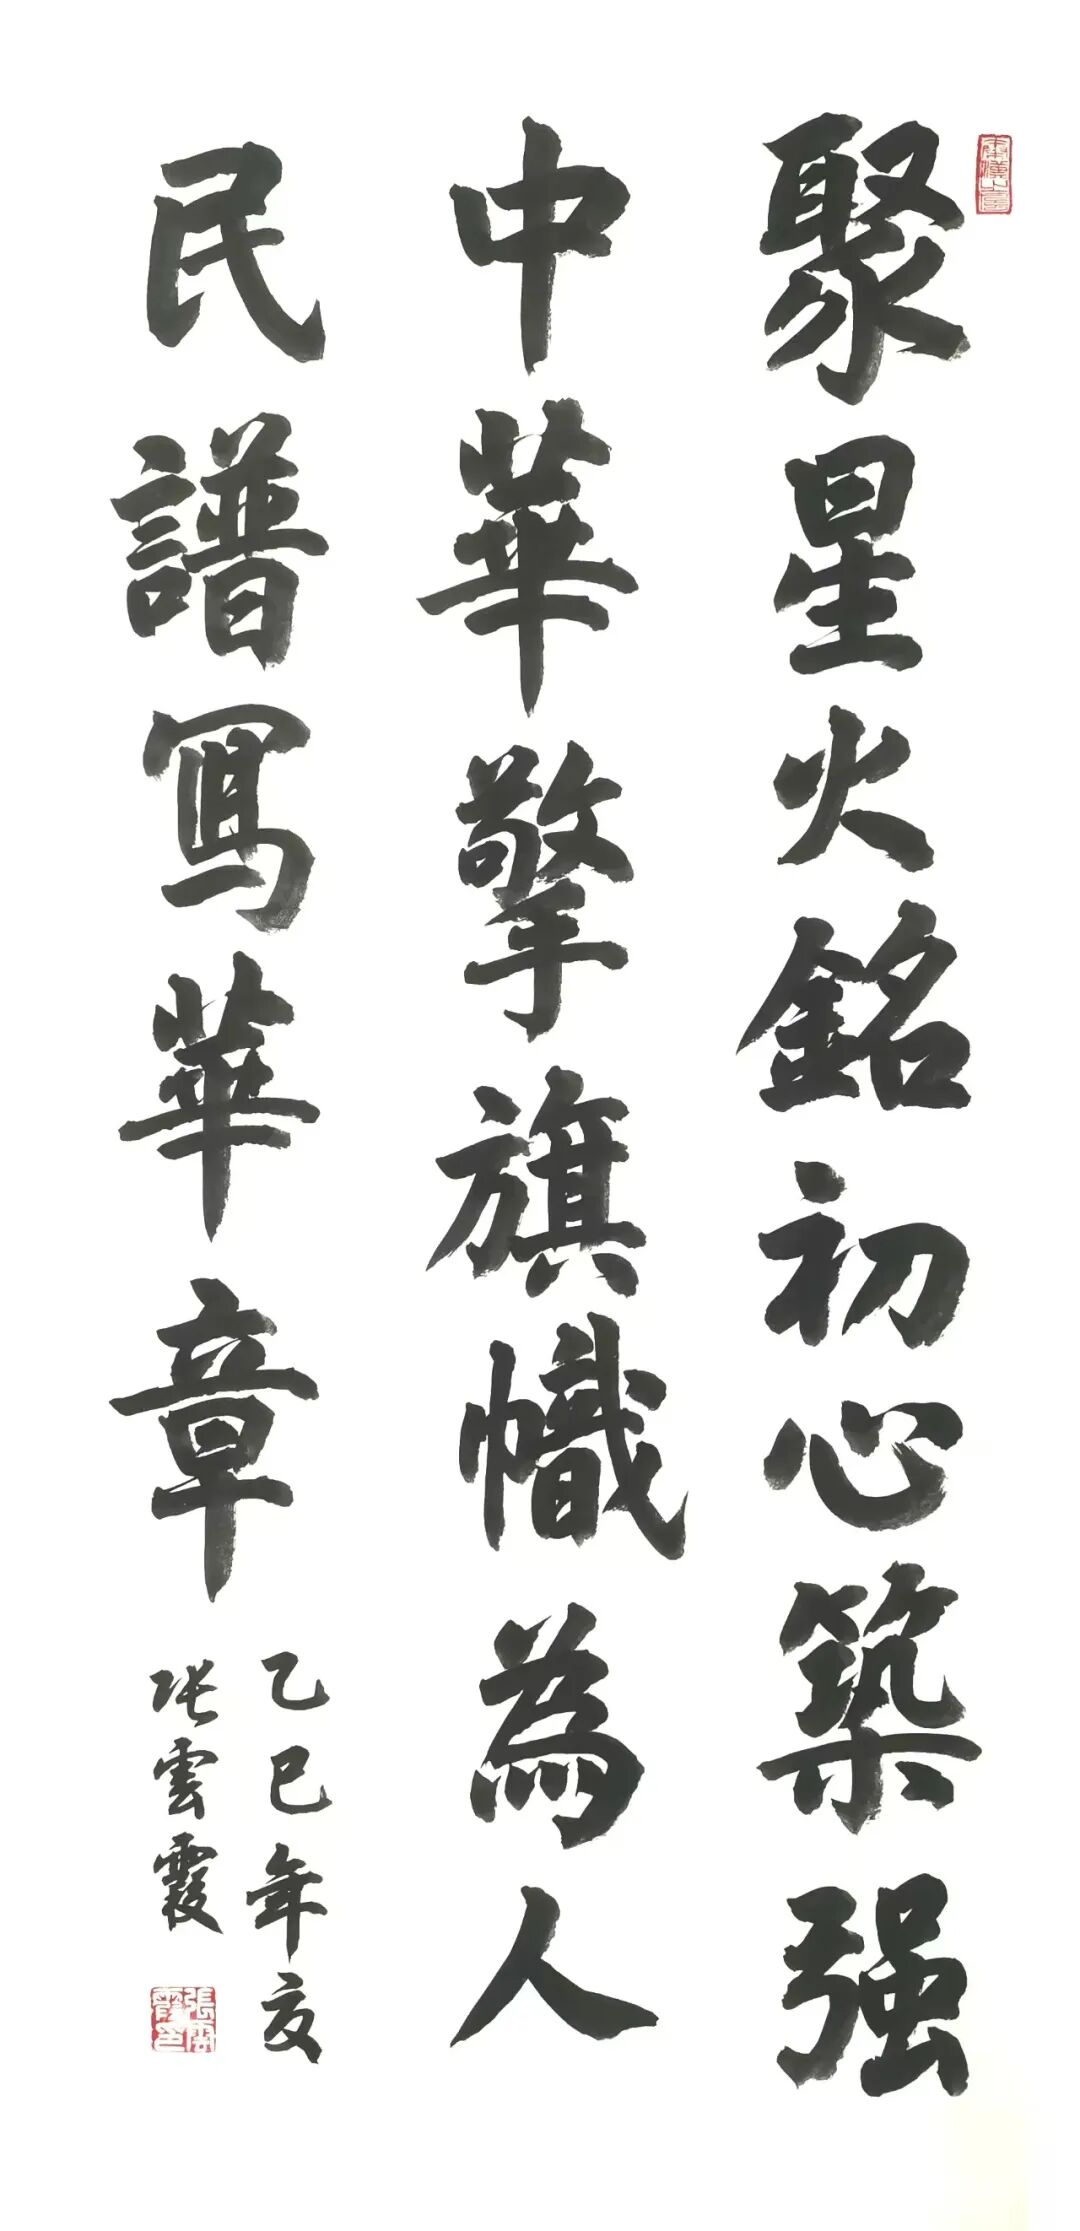 聚星火銘初心築强
中華擎旗幟為人
民譜寫華章
乙巳年夏
张雲霞
張雲霞印